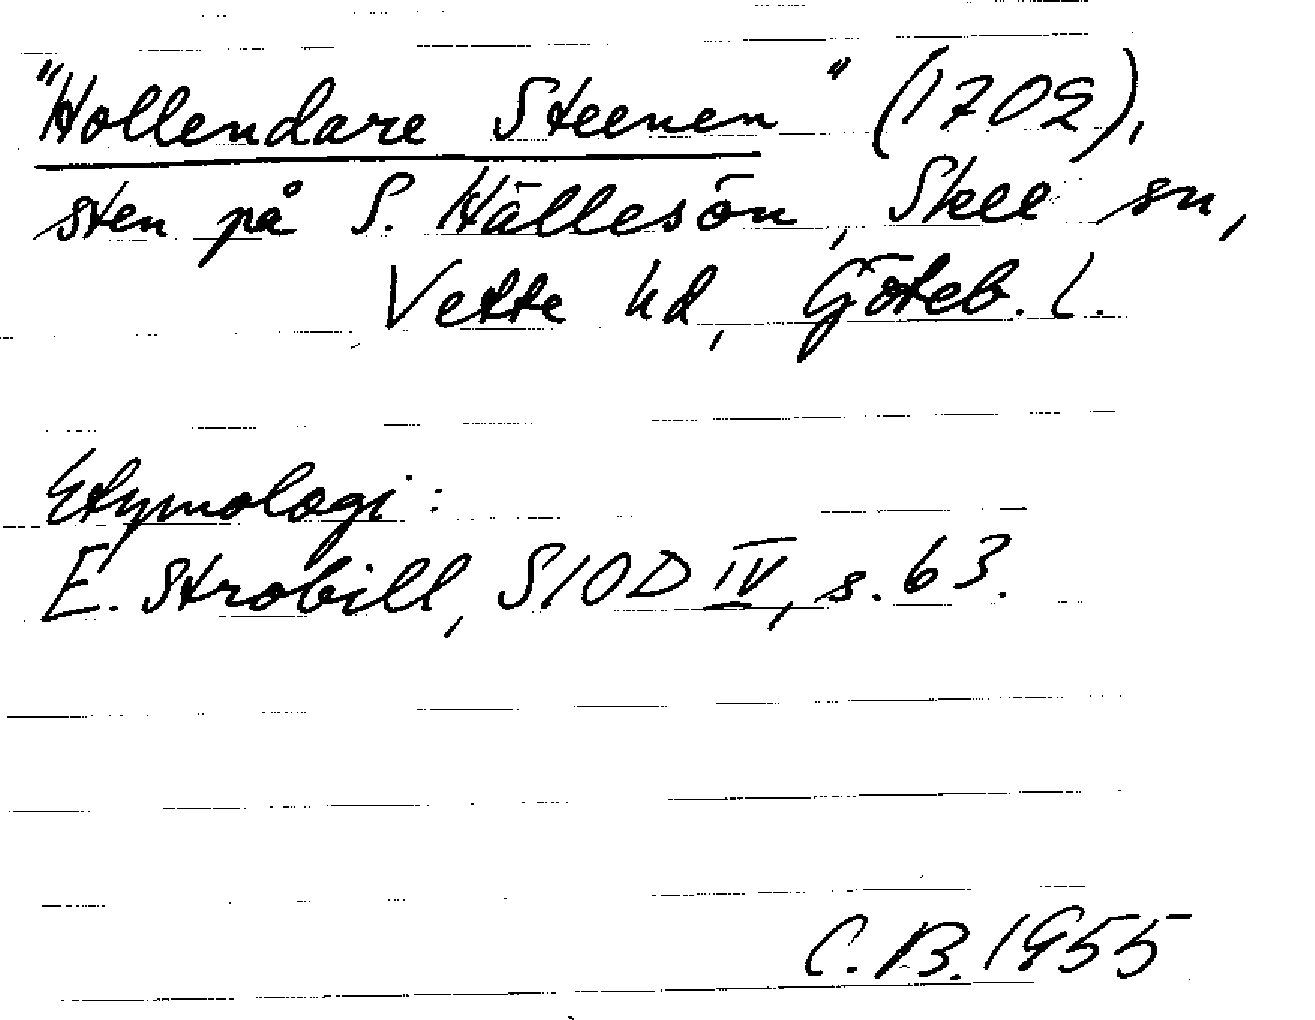 "Hollendare Steenen" (1702),
sten på S. Hällesön, Skee sn,
Vette hd, Göteb. l.
Etymologi:
E. Strobill, SIOD IV, s. 63.
C. B. 1955